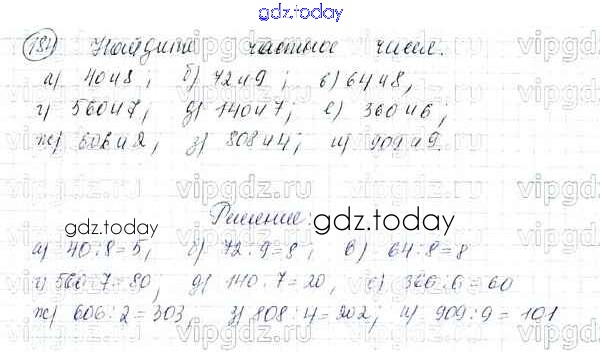 gdz.today
184 Найдите частное чисел.
а) 40 и 8; б) 72 и 9; в) 64 и 8,
г) 560 и 7; д) 140 и 7; е) 360 и 6;
ж) 606 и 2, з) 808 и 4; и) 909 и 9.
Решение:
gdz.today
gdz.today
а) 40:8=5, б) 72:9=8; в) 64:8=8
г) 560:7=80, д) 140:7=20, е) 360:6=60
ж) 606:2=303, з) 808:4=202; и) 909:9=101
vipgdz.ru